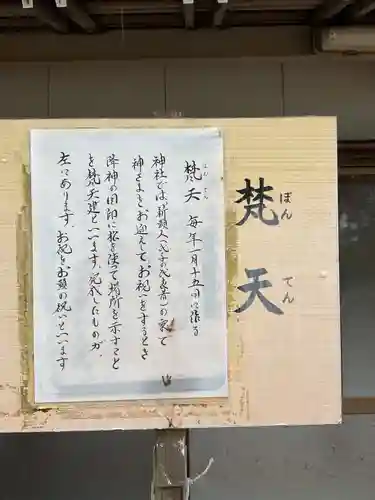 梵天
ぼんてん
梵天 毎年一月十五日に保存
ぼんてん
神社では、新頭人(氏子の代表者)の家で
神さまをお迎えして、お祝いをするとき
降神の目印に松を使って場所を示すこと
を梵天建といいます。完介したものが、
左にあります。お札をお頭の祝いといいます